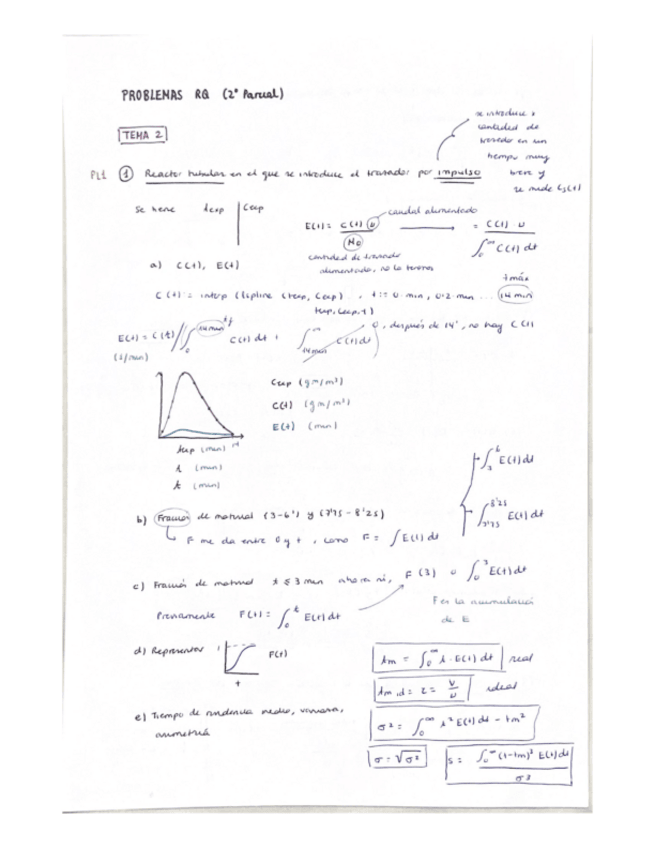 PROBLEMAS RQ (2º Parcial)
TEMA 2
se introduce
cantidad de
trazador en un
tiempo muy
breve y
se mide Cs(t)
PL1 ① Reactor tubular en el que se introduce el trazador por impulso
Se tiene texp | Cexp
E(t) = C(t) υ / No
caudal alimentado
= C(t) υ / ∫₀^∞ C(t) dt
cantidad de trazador
alimentado, no lo tenemos
a) C(t), E(t)
tmáx
C(t) = interp (lspline (texp, Cexp), texp, Cexp, t)
t := 0 min, 0'2 min ... 14 min
E(t) = C(t) / ∫₀^14min C(t) dt + ∫_14min^∞ C(t) dt
tf
0, después de 14', no hay C(t)
(1/min)
Cexp (gm/m³)
C(t) (gm/m³)
E(t) (min)
14
texp (min)
t (min)
t (min)
∫₃^6 E(t) dt
∫_7'75^8'25 E(t) dt
b) Fracción de material (3-6') y (7'75 - 8'25)
F me da entre 0 y t, como F = ∫ E(t) dt
c) Fracción de material t ≤ 3 min ahora sí, F(3) o ∫₀^3 E(t) dt
Previamente F(t) = ∫₀^t E(t) dt
F es la acumulación
de E
d) Representar
1
F(t)
t
tm = ∫₀^∞ t · E(t) dt real
tm,id = τ = V/υ ideal
e) Tiempo de residencia medio, varianza,
asimetría
σ² = ∫₀^∞ t² E(t) dt - tm²
σ = √σ²
s = ∫₀^∞ (t-tm)³ E(t) dt / σ³